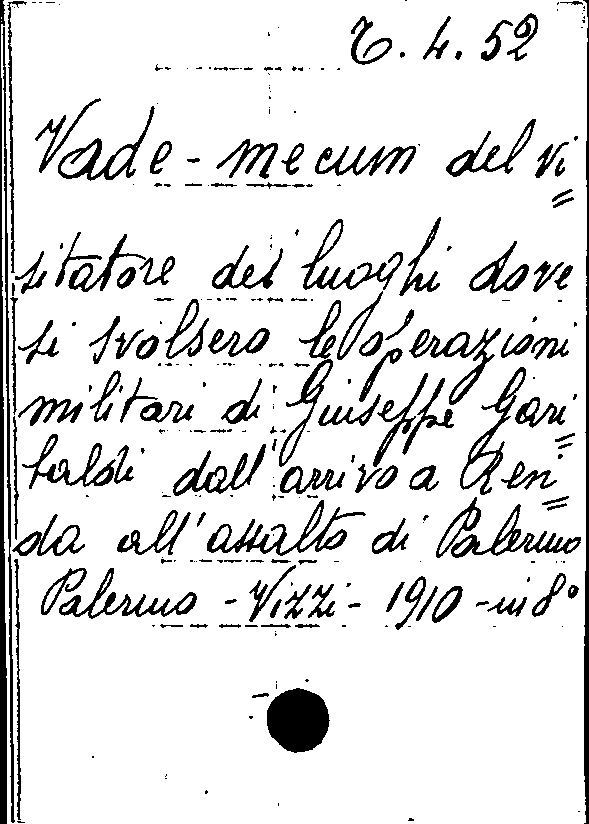 C. 4. 52
Vade-mecum del vi=
sitatore dei luoghi dove
si svolsero le operazioni
militari di Giuseppe Gari=
baldi dall'arrivo a Ren=
da all'assalto di Palermo
Palermo - Vizzi - 1910 - in 8°